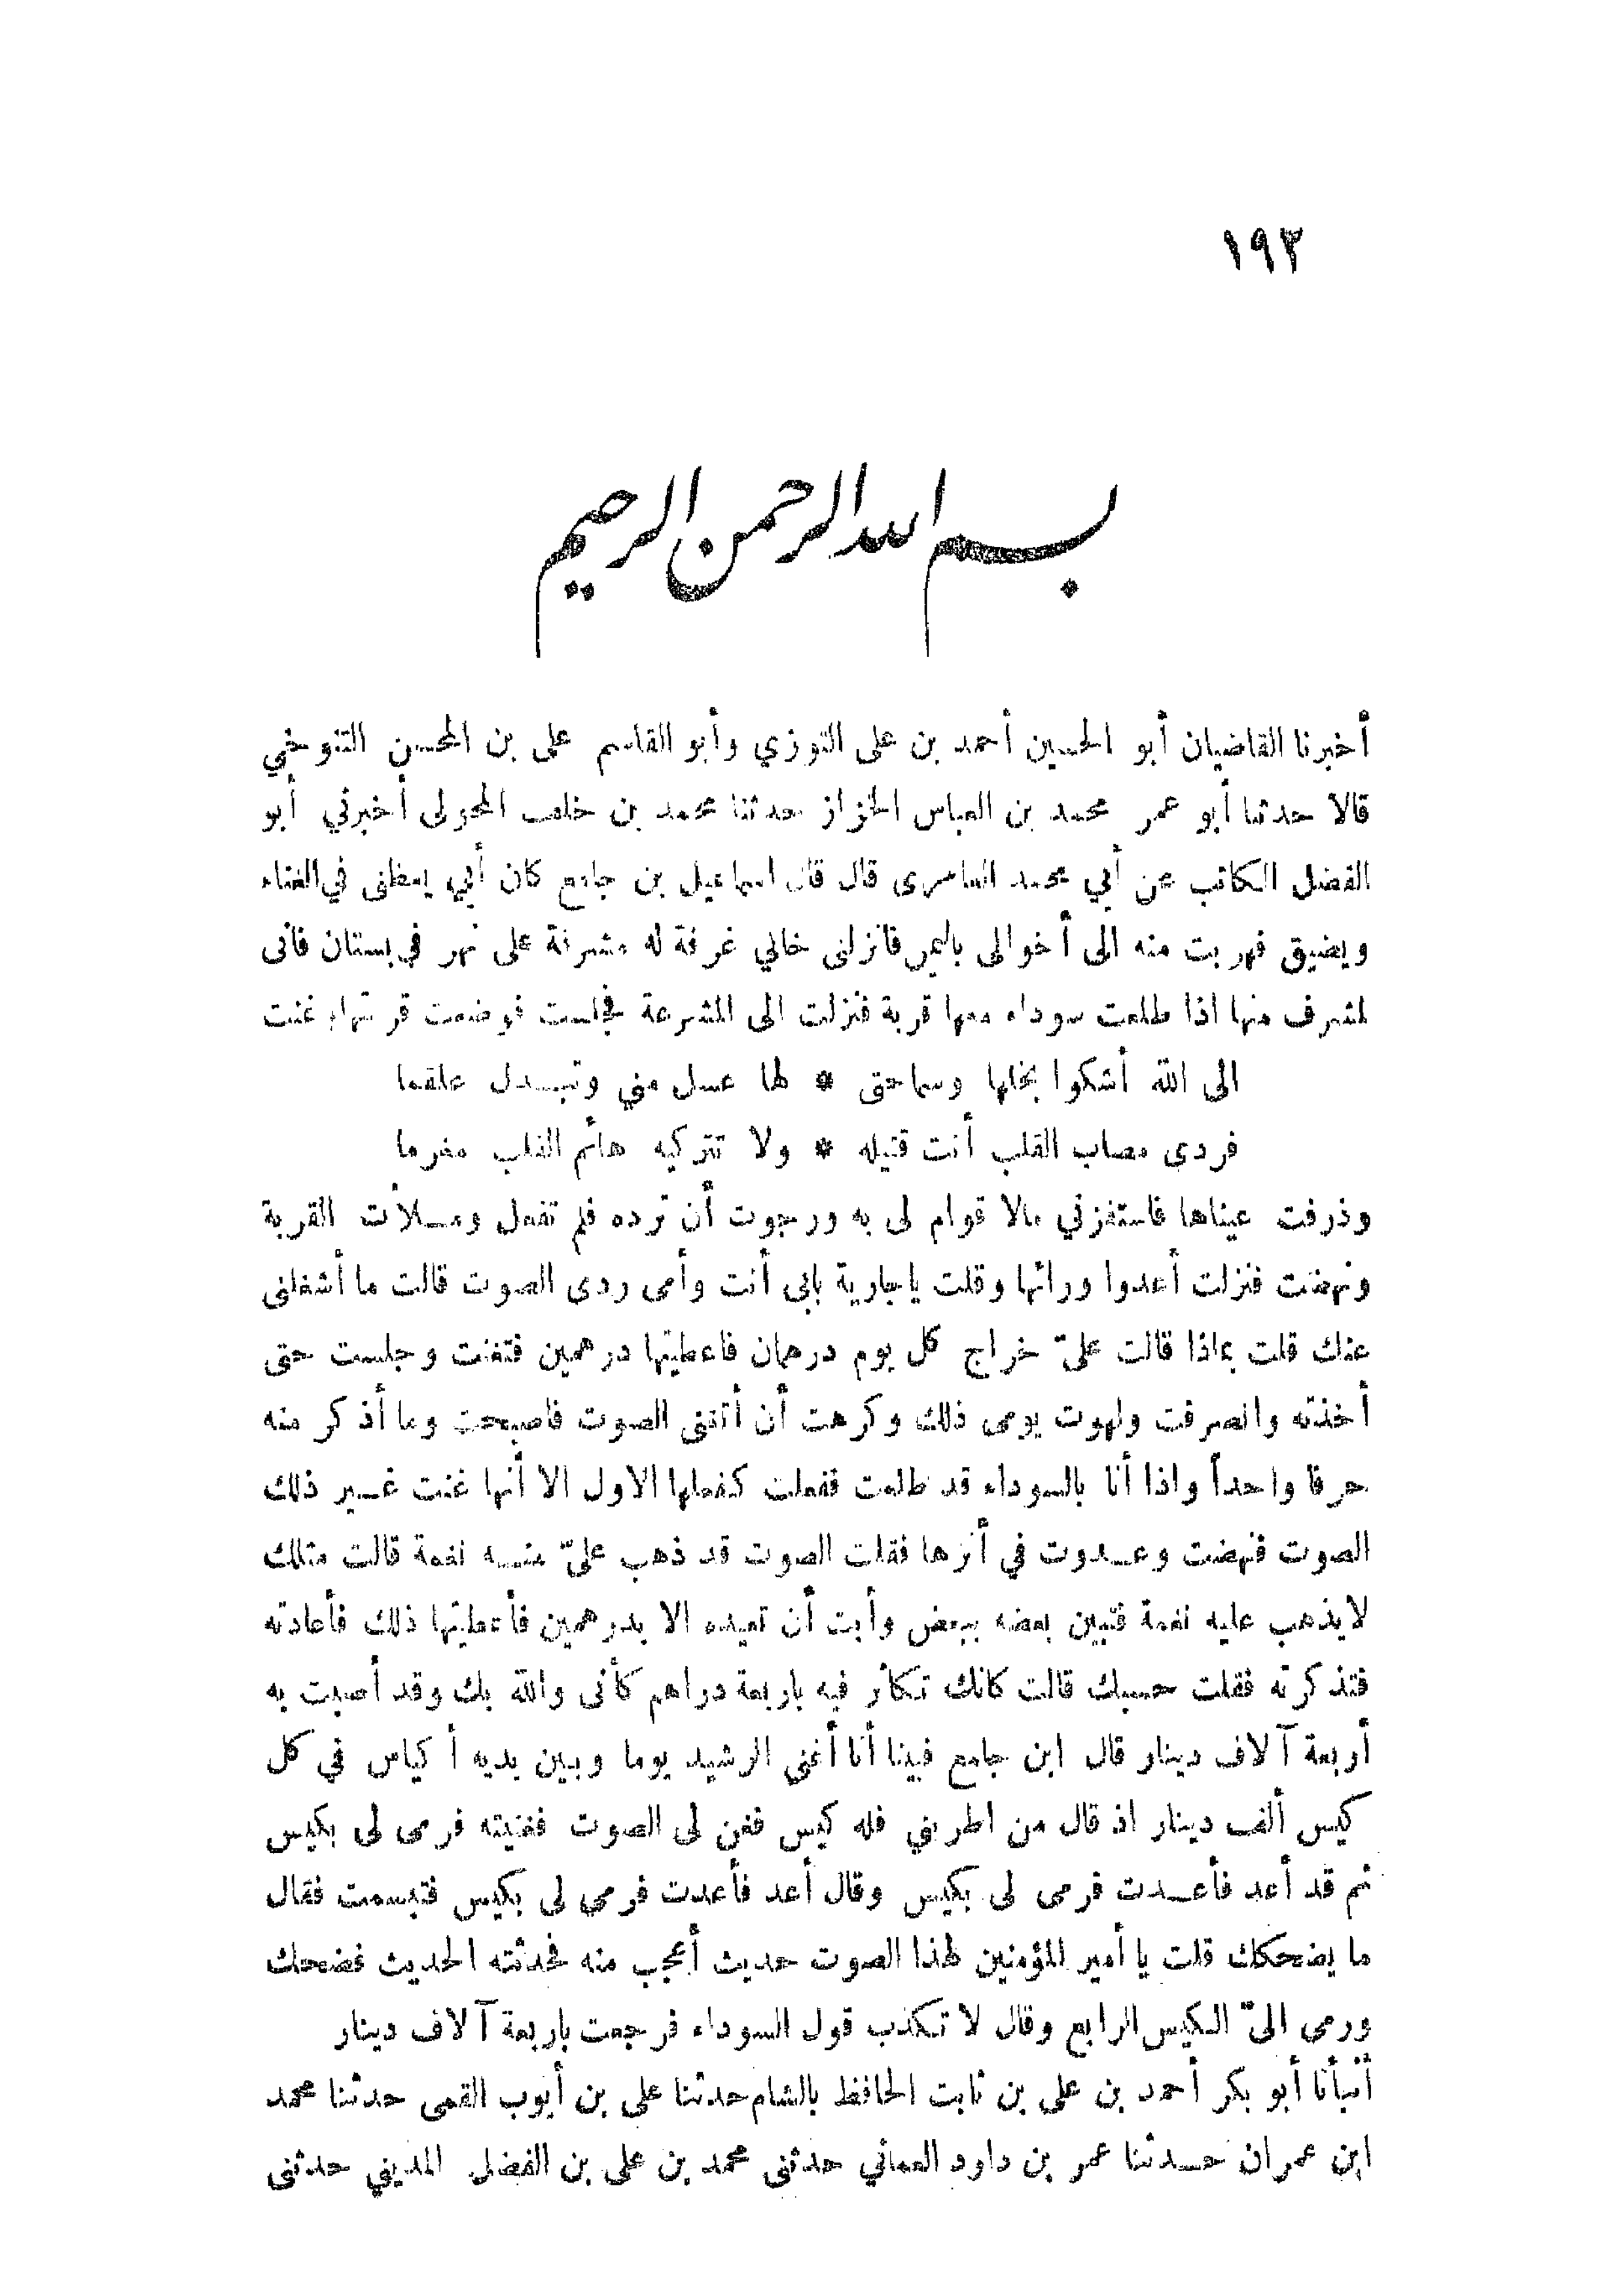 ١٩٣
بسم الله الرحمن الرحيم
أخبرنا القاضيان أبو الحسين أحمد بن على التوزي وأبو القاسم على بن المحسن التنوخي
قالا حدثنا أبو عمر محمد بن العباس الخزاز حدثنا محمد بن خلف المحولى أخبرني أبو
الفضل الكاتب عن أبي محمد العامرى قال قال اسماعيل بن جامع كان أبي يعظنى في الغناء
ويضيق فهربت منه الى أخوالى باليمن فانزلنى خالي غرفة له مشرفة على نهر في بستان فانى
لمشرف منها اذا طلعت سوداء معها قربة فنزلت الى المشرعة فجلست فوضعت قربتها وغنت
الى الله أشكوا بخلها وسماحتى * لها عسل مني وتبدل علقما
فردى مصاب القلب أنت قتيله * ولا تتركيه هائم القلب مغرما
وذرفت عيناها فاستفزني مالا قوام لى به ورجوت أن ترده فلم تفعل وملأت القربة
ونهضت فنزلت أعدوا ورائها وقلت ياجارية بابى أنت وأمى ردى الصوت قالت ما أشغلنى
عنك قلت بماذا قالت علىّ خراج كل يوم درهمان فاعطيتها درهمين فتغنت وجلست حتى
أخذته وانصرفت ولهوت يومى ذلك وكرهت أن أتغنى الصوت فاصبحت وما أذكر منه
حرفا واحداً واذا أنا بالسوداء قد طلعت ففعلت كفعلها الاول الا أنها غنت غير ذلك
الصوت فنهضت وعدوت في أثرها فقلت الصوت قد ذهب علىّ منه نغمة قالت مثلك
لايذهب عليه نغمة فتبين بعضه ببعض وأبت أن تعيده الا بدرهمين فأعطيتها ذلك فأعادته
فتذكرته فقلت حسبك قالت كانك تكاثر فيه باربعة دراهم كأنى والله بك وقد أصبت به
أربعة آلاف دينار قال ابن جامع فبينا أنا أغنى الرشيد يوما وبين يديه أكياس في كل
كيس ألف دينار اذ قال من اطربني فله كيس فغن لى الصوت فغنيته فرمى لى بكيس
ثم قد أعد فأعدت فرمى لى بكيس وقال أعد فأعدت فرمى لى بكيس فتبسمت فقال
ما يضحكك قلت يا أمير المؤمنين لهذا الصوت حديث أعجب منه فحدثته الحديث فضحك
ورمى الىّ الكيس الرابع وقال لا تكذب قول السوداء فرجعت باربعة آلاف دينار
أنبأنا أبو بكر أحمد بن على بن ثابت الحافظ بالشام حدثنا على بن أيوب القمى حدثنا محمد
ابن عمران حدثنا عمر بن داود العماني حدثنى محمد بن على بن الفضل المديني حدثنى